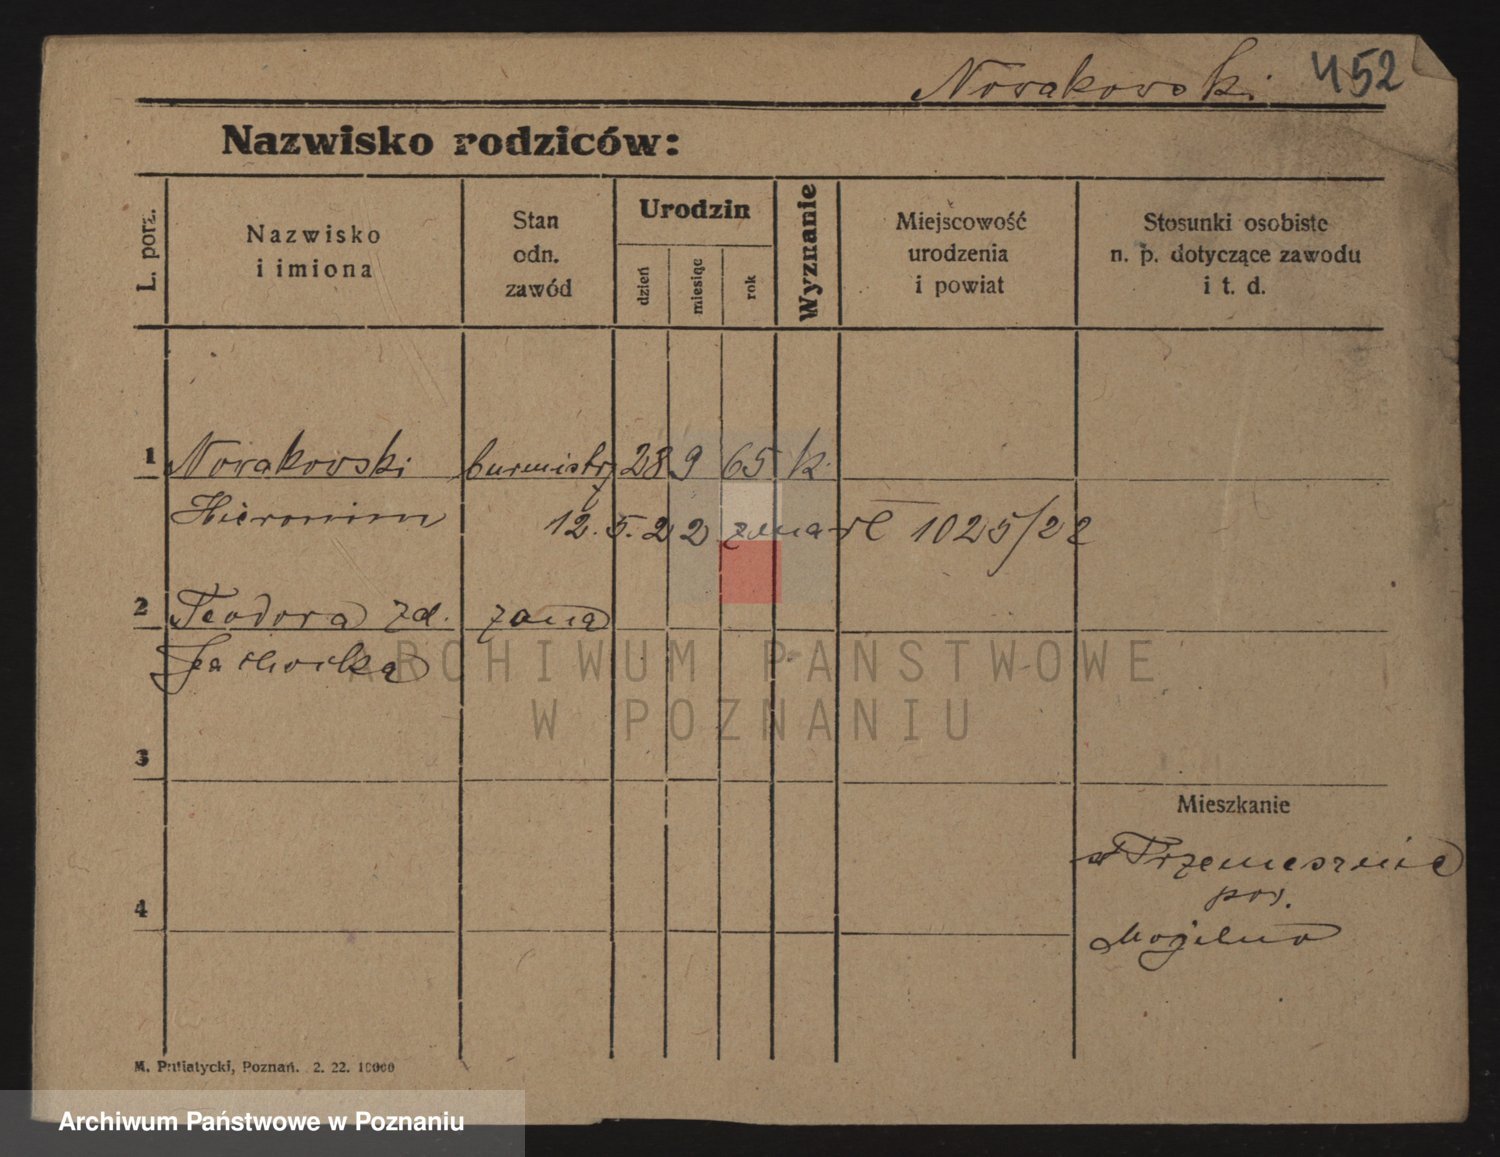 Nowakowski 452
Nazwisko rodziców:
L. porz.
Nazwisko
i imiona
Stan
odn.
zawód
Urodzin
dzień
miesiąc
rok
Wyznanie
Miejscowość
urodzenia
i powiat
Stosunki osobiste
n. p. dotyczące zawodu
i t. d.
1 Nowakowski burmistrz 28 9 65 k.
Hieronim 12. 5. 22 zmarł 1025/22
2 Teodora zd. żona
ARCHIWUM PAŃSTWOWE
W POZNANIU
3
Mieszkanie
w Trzemesznie
pow.
Mogilno
4
M. Putiatycki, Poznań. 2. 22. 10000
Archiwum Państwowe w Poznaniu